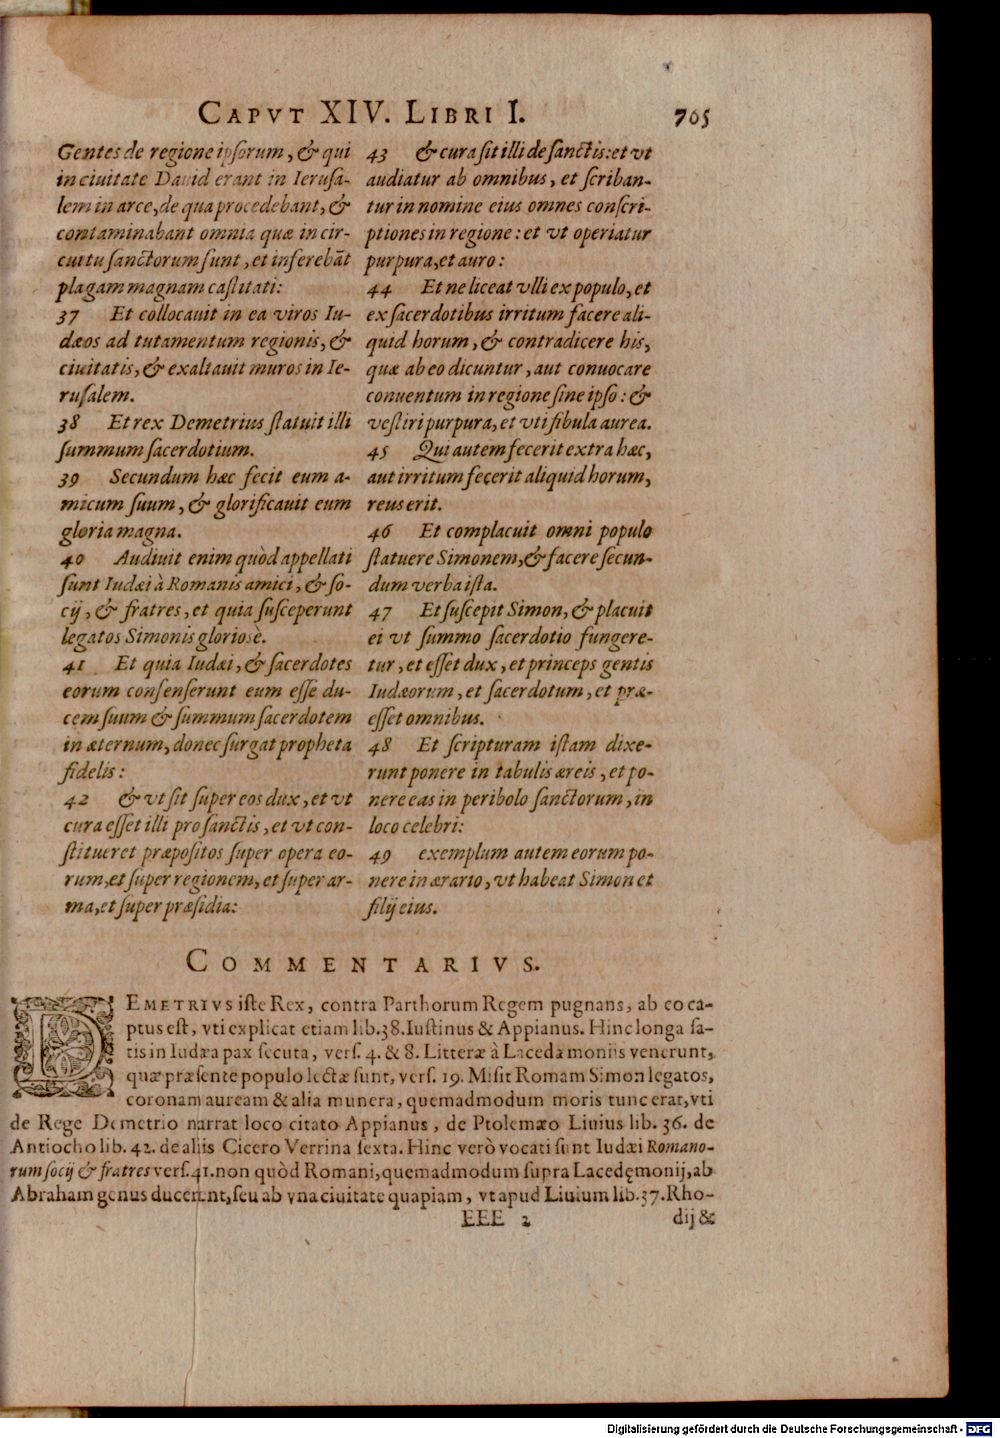 CAPVT XIV. LIBRI I. 705
Gentes de regione ipsorum, & qui
in ciuitate Dauid erant in Ierusa-
lem in arce, de qua procedebant, &
contaminabant omnia quæ in cir-
cuitu sanctorum sunt, et inferebāt
plagam magnam castitati:
37 Et collocauit in ea viros Iu-
dæos ad tutamentum regionis, &
ciuitatis, & exaltauit muros in Ie-
rusalem.
38 Et rex Demetrius statuit illi
summum sacerdotium.
39 Secundum hæc fecit eum a-
micum suum, & glorificauit eum
gloria magna.
40 Audiuit enim quòd appellati
sunt Iudæi à Romanis amici, & so-
cij, & fratres, et quia susceperunt
legatos Simonis gloriosè.
41 Et quia Iudæi, & sacerdotes
eorum consenserunt eum esse du-
cem suum & summum sacerdotem
in æternum, donec surgat propheta
fidelis:
42 & vt sit super eos dux, et vt
cura esset illi pro sanctis, et vt con-
stitueret præpositos super opera eo-
rum, et super regionem, et super ar-
ma, et super præsidia:
43 & cura sit illi de sanctis: et vt
audiatur ab omnibus, et scriban-
tur in nomine eius omnes conscri-
ptiones in regione: et vt operiatur
purpura, et auro:
44 Et ne liceat vlli ex populo, et
ex sacerdotibus irritum facere ali-
quid horum, & contradicere his,
quæ ab eo dicuntur, aut conuocare
conuentum in regione sine ipso: &
vestiri purpura, et vti fibula aurea.
45 Qui autem fecerit extra hæc,
aut irritum fecerit aliquid horum,
reus erit.
46 Et complacuit omni populo
statuere Simonem, & facere secun-
dum verba ista.
47 Et suscepit Simon, & placuit
ei vt summo sacerdotio fungere-
tur, et esset dux, et princeps gentis
Iudæorum, et sacerdotum, et præ-
esset omnibus.
48 Et scripturam istam dixe-
runt ponere in tabulis æreis, et po-
nere eas in peribolo sanctorum, in
loco celebri:
49 exemplum autem eorum po-
nere in ærario, vt habeat Simon et
filij eius.
COMMENTARIVS.
DEMETRIVS iste Rex, contra Parthorum Regem pugnans, ab eo ca-
ptus est, vti explicat etiam lib. 38. Iustinus & Appianus. Hinc longa sa-
tis in Iudæa pax secuta, vers. 4. & 8. Litteræ à Lacedæmoniis venerunt,
quæ præsente populo lectæ sunt, vers. 19. Misit Romam Simon legatos,
coronam auream & alia munera, quemadmodum moris tunc erat, vti
de Rege Demetrio narrat loco citato Appianus, de Ptolemæo Liuius lib. 36. de
Antiocho lib. 42. de aliis Cicero Verrina sexta. Hinc verò vocati sunt Iudæi Romano-
rum socij & fratres vers. 41. non quòd Romani, quemadmodum supra Lacedęmonij, ab
Abraham genus ducerent, seu ab vna ciuitate quapiam, vt apud Liuium lib. 37. Rho-
EEE 2 dij &
Digitalisierung gefördert durch die Deutsche Forschungsgemeinschaft - DFG